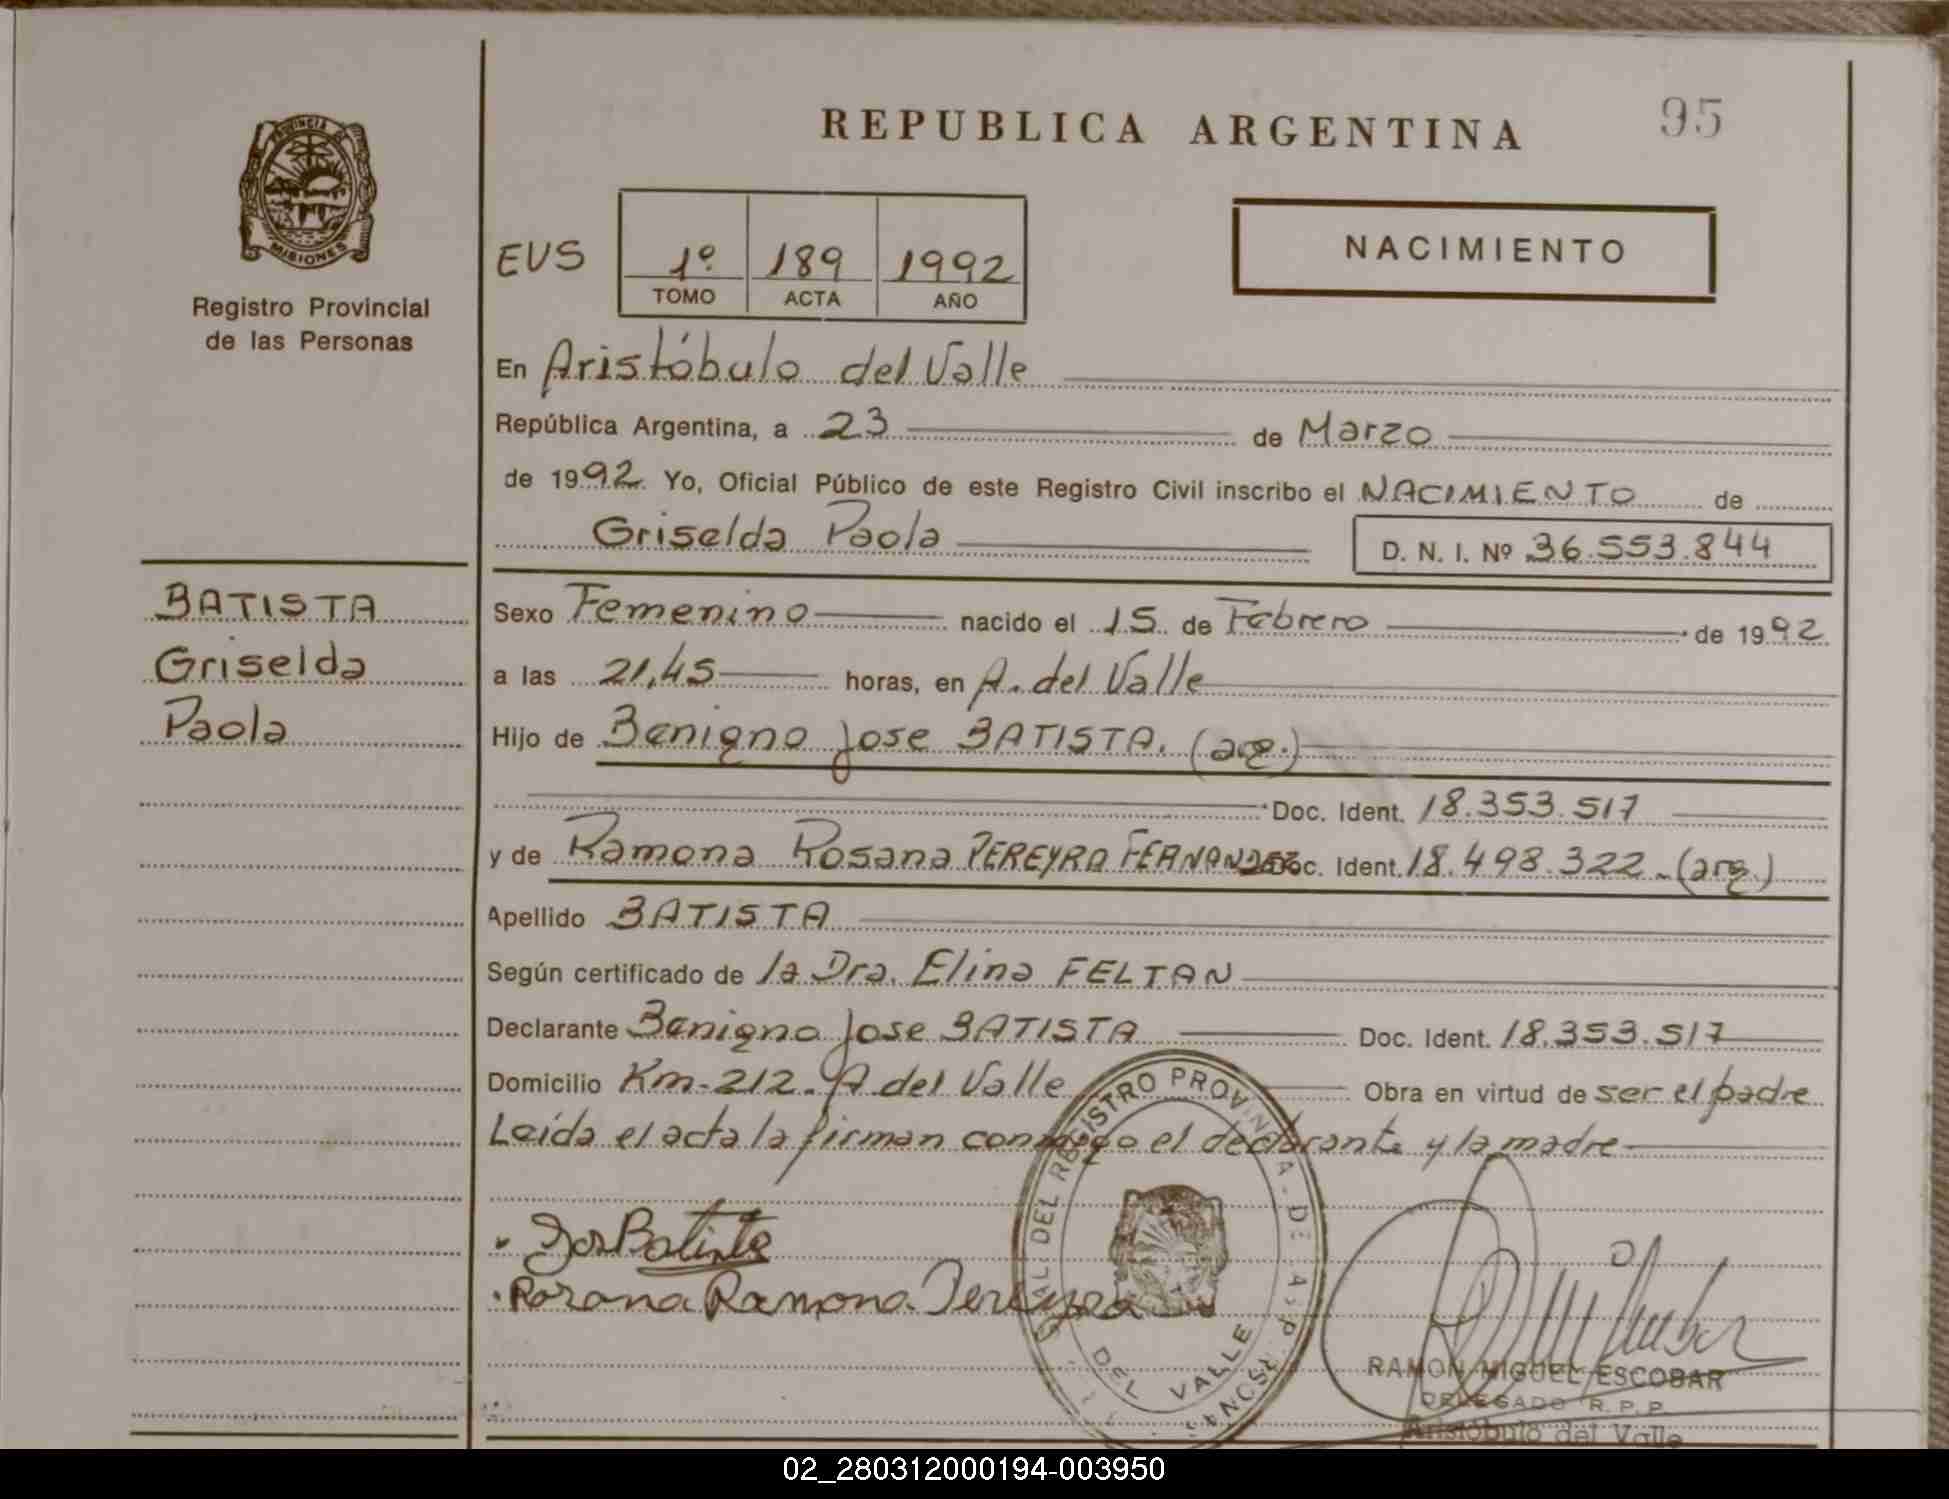 REPUBLICA ARGENTINA
95
PROVINCIA DE
MISIONES
Registro Provincial
de las Personas
EVS
1º 189 1992
TOMO ACTA AÑO
NACIMIENTO
En Aristóbulo del Valle
República Argentina, a 23 de Marzo
de 1992. Yo, Oficial Público de este Registro Civil inscribo el NACIMIENTO de
Griselda Paola D. N. I. Nº 36.553.844
BATISTA
Griselda
Paola
Sexo Femenino nacido el 15 de Febrero de 1992
a las 21,45 horas, en A. del Valle
Hijo de Benigno Jose BATISTA. (arg.)
Doc. Ident. 18.353.517
y de Ramona Rosana PEREYRA FERNANDEZ Doc. Ident. 18.498.322 (arg.)
Apellido BATISTA
Según certificado de la Dra. Elina FELTAN
Declarante Benigno Jose BATISTA Doc. Ident. 18.353.517
Domicilio Km-212. A del Valle Obra en virtud de ser el padre
Leída el acta la firman conmigo el declarante y la madre
Jos Batista
Rosana Ramona Pereyra
DEL REGISTRO PROVINCIAL DE LAS PERSONAS
DEL VALLE
RAMON MIGUEL ESCOBAR
DELEGADO R. P. P.
Aristóbulo del Valle
02_280312000194-003950